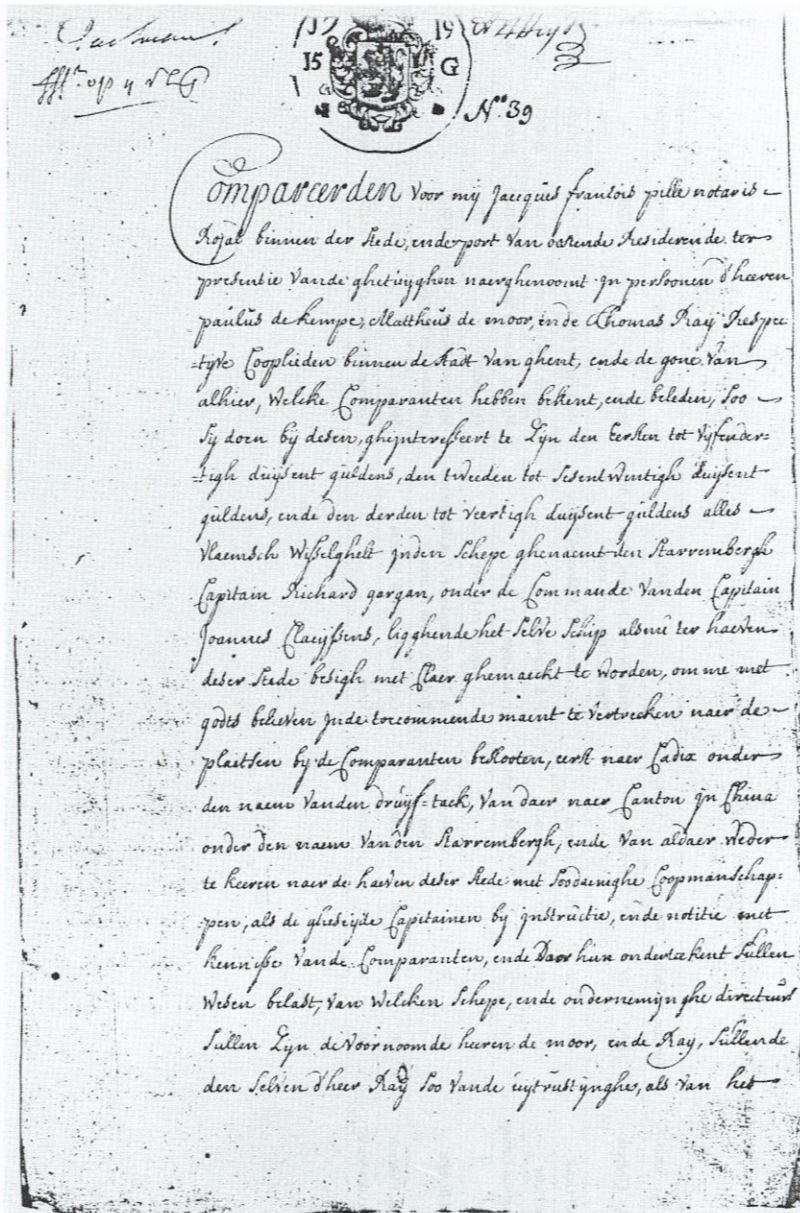 17 19
15 G
N.º 39
Compareerden voor mij Jacques fransois pille notaris
Rojal binnen der stede, ende port van oostende residerende ter
presentie vande ghetuyghen naerghenoomt in persoonen d'heeren
paulus de kempe, Mattheus de moor, ende Thomas Raÿ Respec
=tyve Cooplieden binnen de stadt van ghent, ende de gone van
alhier, welcke Comparanten hebben bekent, ende beleden, soo
sy doen bij desen, gheinteresseert te zyn den eersten tot vyfender=
=tigh duijsent guldens, den tweeden tot sesentwentigh duijsent
guldens, ende den derden tot veertigh duijsent guldens alles
vlaemsch wisselghelt inden schepe ghenaemt den Starrembergh
Capitain Richard gargan, onder de Commande vanden Capitain
Joannes Claeijssens, ligghende het selve schip alsnu ter haeven
deser stede besigh met Claer ghemaeckt te worden, omme met
godts believen inde toecommende maent te vertrecken naer de
plaetsen by de Comparanten beslooten, eerst naer Cadix onder
den naem vanden druyf=tack, van daer naer Canton in China
onder den naem vanden Starrembergh, ende van aldaer weder
te keeren naer de haeven deser stede met soodaenighe Coopmanschap=
=pen, als de gheseijde Capitainen by instructie, ende notitie met
kennisse vande Comparanten, ende Daor hun onderteekent sullen
wesen belast, van welcken schepe, ende ondernemijnghe directeurs
sullen zyn de voornoomde heeren de moor, ende Raÿ, sullende
den selven d'heer Raÿ soo vande uijtrustijnghe, als van het